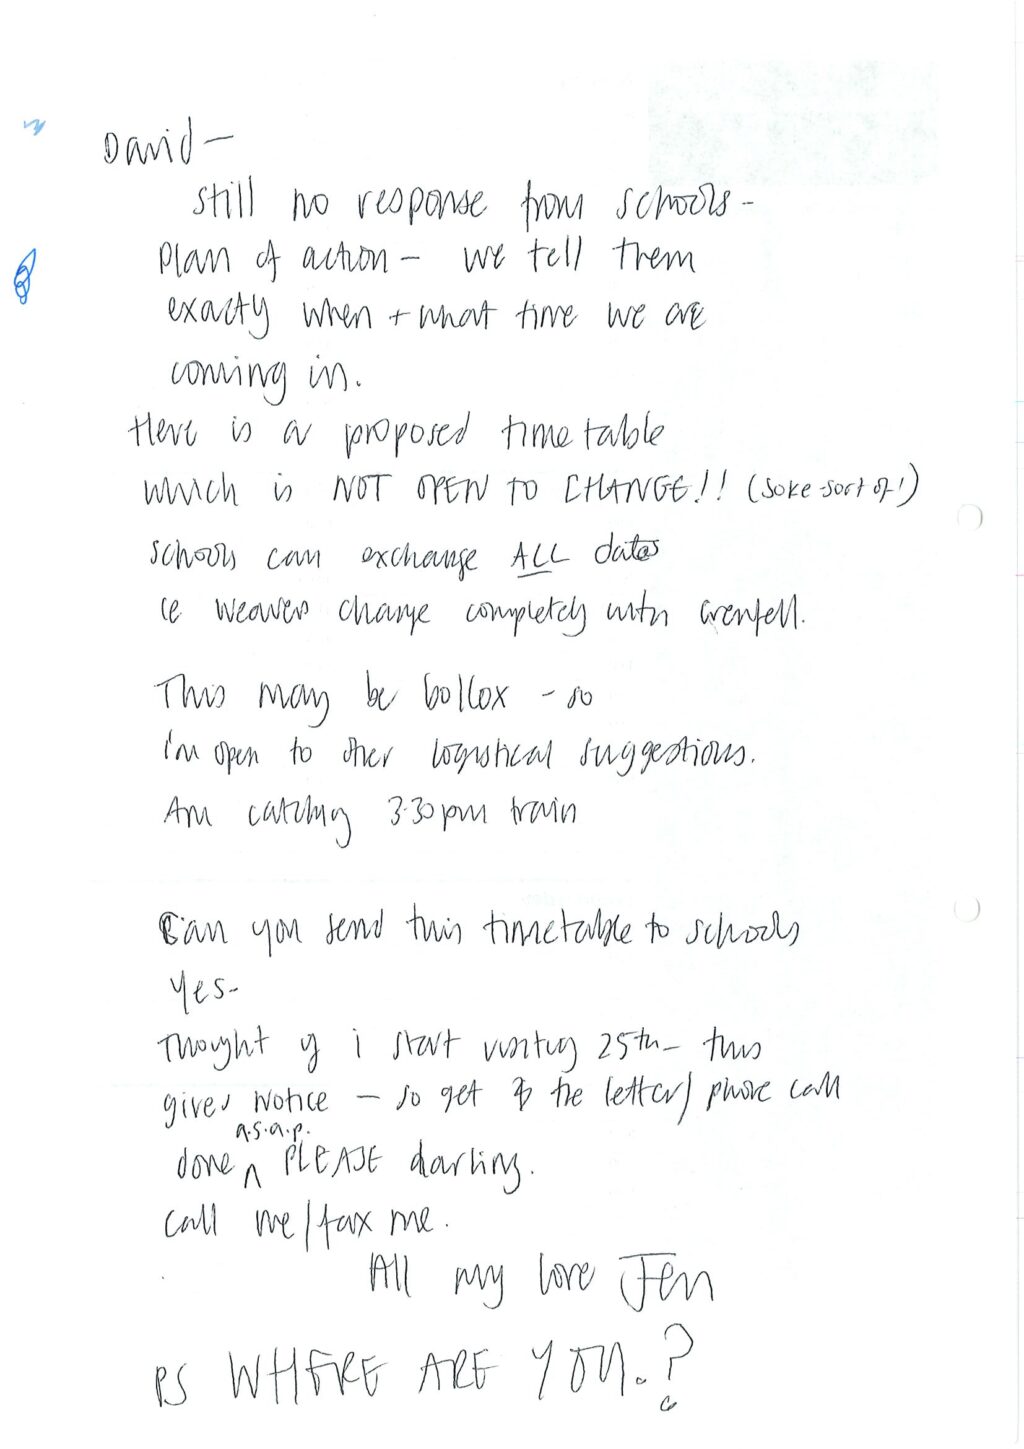 David —
still no response from schools -
Plan of action - we tell them
exacty when + what time we are
coming in.
Here is a proposed timetable
which is NOT OPEN TO CHANGE!! (Joke-sort of!)
schools can exchange ALL dates
ie Weavers change completely with Grenfell.
This may be bollox - so
i'm open to other logistical suggestions.
Am catching 3.30pm train
Can you send this timetable to schools
Yes-
Thought if i start visiting 25th - this
gives notice - so get the letter/phone call
a.s.a.p.
done ^ PLEASE darling.
call me/fax me.
All my love Jen
PS WHERE ARE YOU.?